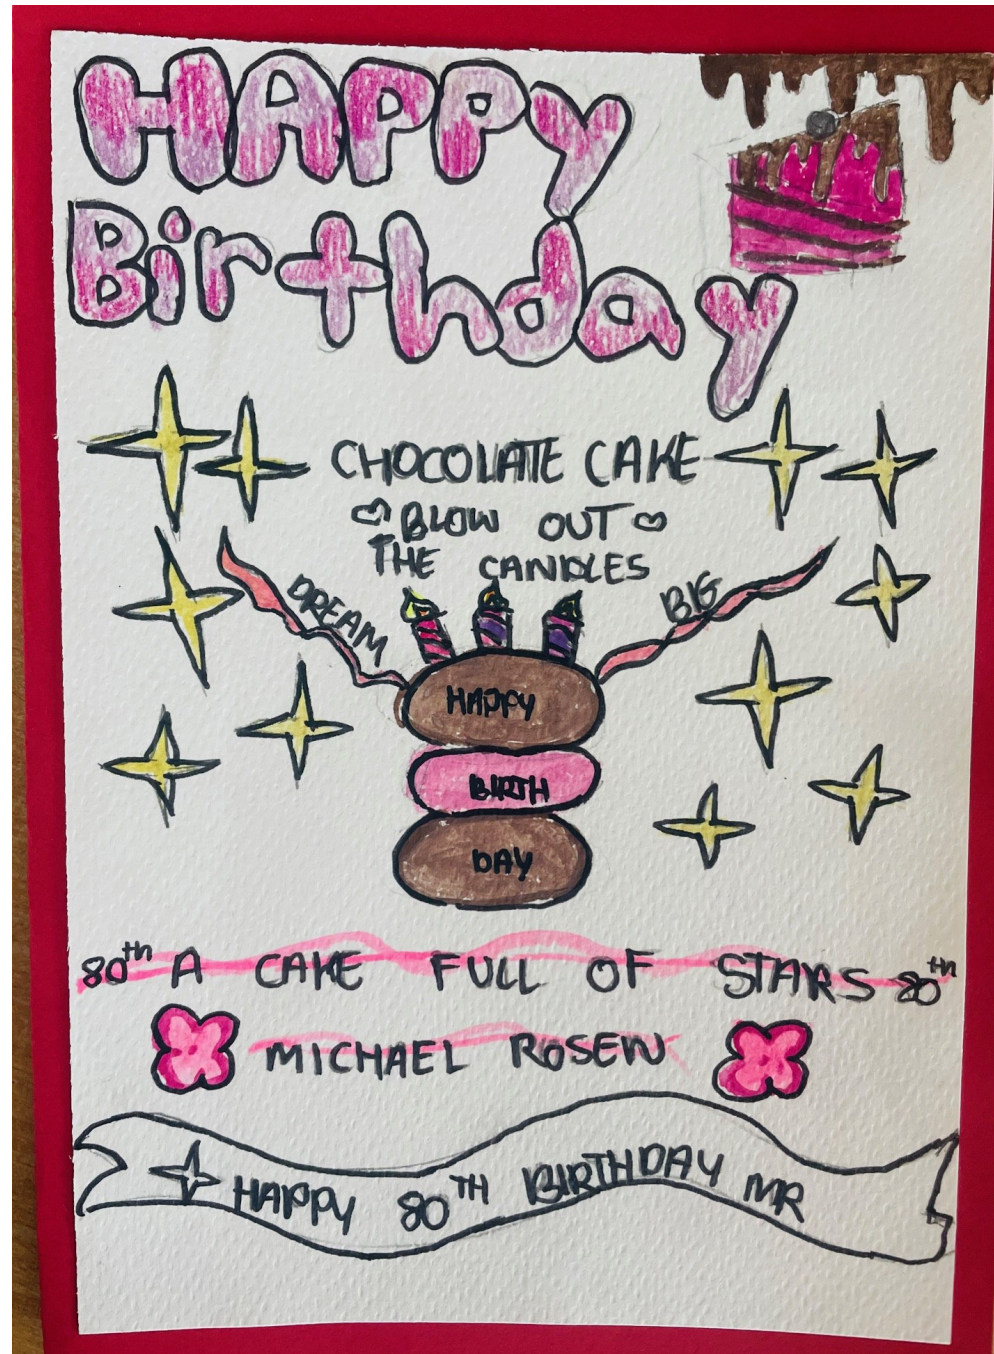 HAPPY
Birthday
CHOCOLATE CAKE
BLOW OUT
THE CANDLES
DREAM BIG
HAPPY
BIRTH
DAY
80th A CAKE FULL OF STARS 80th
MICHAEL ROSEN
HAPPY 80TH BIRTHDAY MR